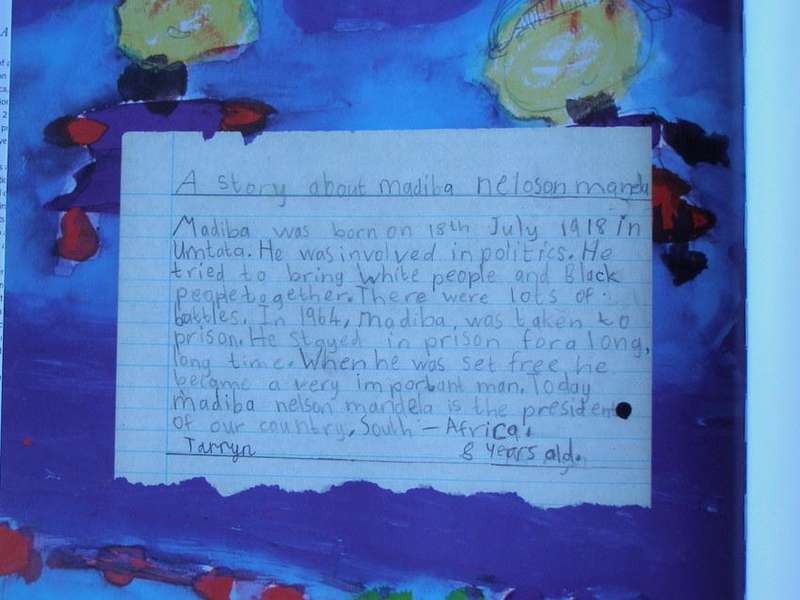 A story about madiba neloson mandela
Madiba was born on 18th July 1918 in
Umtata. He was involved in politics. He
tried to bring White people and Black
people together. There were lots of
battles. In 1964, Madiba was taken to
prison. He stayed in prison for a long,
long time. When he was set free he
became a very important man. Today
Madiba nelson mandela is the president
of our country, South - Africa.
Tarryn 8 years old.